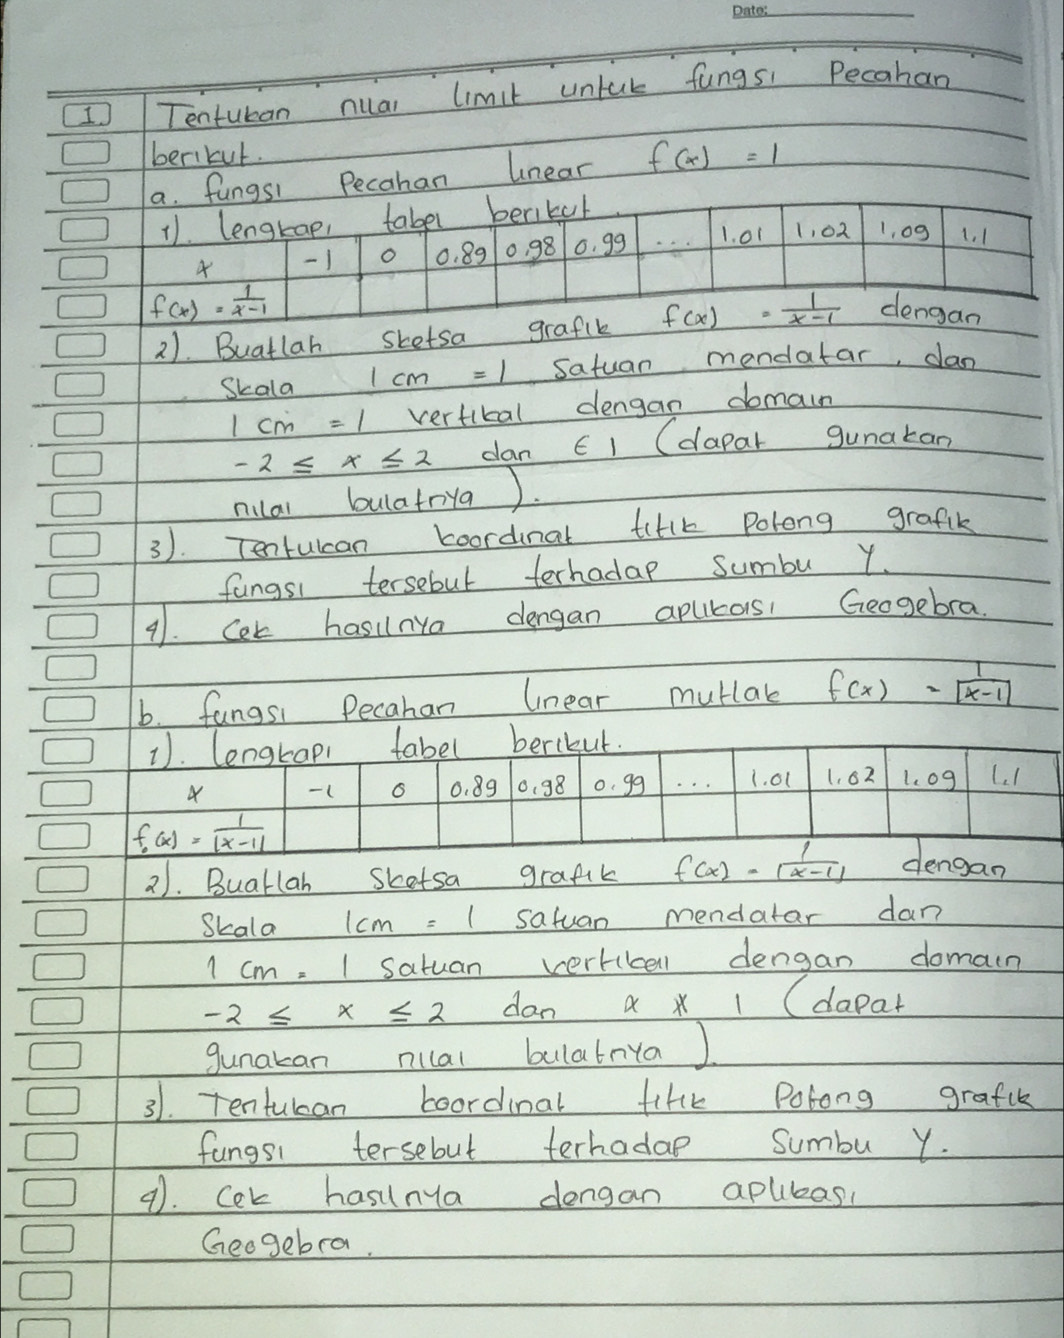 Date:
1 Tentukan nilai limit untuk fungsi Pecahan
berikut.
a. fungsi Pecahan linear f(x) = 1
1). lengkapi tabel berikut.
x -1 0 0.89 0.98 0.99 ... 1.01 1.02 1.09 1.1
f(x) = 1/x-1
2). Buatlah sketsa grafik f(x) = 1/x-1 dengan
Skala 1 cm = 1 satuan mendatar, dan
1 cm = 1 vertikal dengan domain
-2 ≤ x ≤ 2 dan ∈ 1 (dapat gunakan
nilai bulatnya).
3). Tentukan koordinat titik Potong grafik
fungsi tersebut terhadap Sumbu Y.
4). Cek hasilnya dengan aplikasi Geogebra.
b. fungsi Pecahan linear mutlak f(x) = 1/|x-1|
1). lengkapi tabel berikut.
x -1 0 0.89 0.98 0.99 ... 1.01 1.02 1.09 1.1
f(x) = 1/|x-1|
2). Buatlah Sketsa grafik f(x) = 1/|x-1| dengan
Skala 1cm = 1 satuan mendatar dan
1 cm = 1 satuan vertikal dengan domain
-2 ≤ x ≤ 2 dan x 1 (dapat
gunakan nilai bulatnya)
3). Tentukan koordinat titik Potong grafik
fungsi tersebut terhadap Sumbu Y.
4). Cek hasilnya dengan aplikasi
Geogebra.